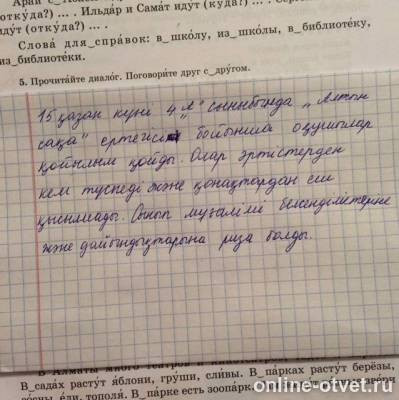 Арай с
(откуда?) ... . Ильдар и Самат идут (куда?) ... .
идут (откуда?) ... .
Слова для_справок: в_школу, из_школы, в_библиотеку,
из_библиотеки.
5. Прочитайте диалог. Поговорите друг с_другом.
15 қазан күні 4 „А" сыныбында „Алтын
сақа" ертегісі бойынша оқушылар
қойылым қойды. Олар әртістерден
кем түспеді және қонақтардан еш
қысылмады. Сынып мұғалімі белсенділіктеріне
және дайындықтарына риза болды.
В_Алматы много театров и
В_садах растут яблони, груши, сливы. В_парках растут берёзы,
сосны, ели, тополя. В_парке есть зоопарк.
online-otvet.ru